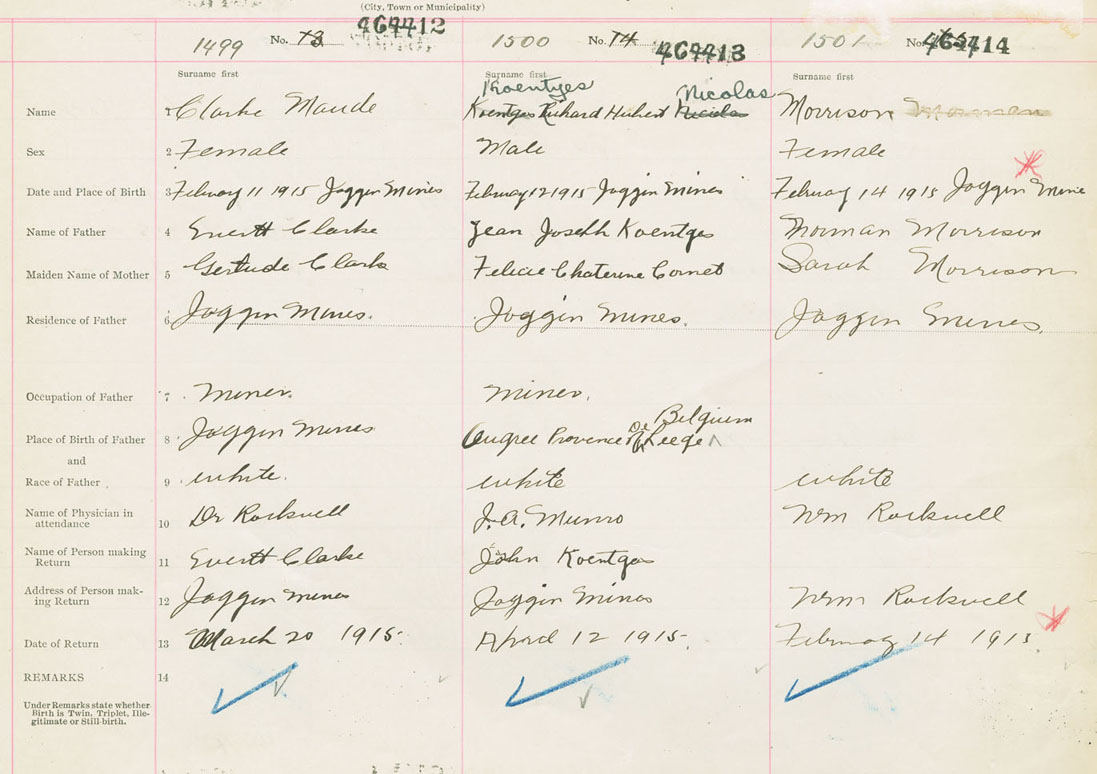 (City, Town or Municipality)
1499 No. 73 464412 1500 No. 74 464413 1501 No. 464414
Surname first Surname first Surname first
Koentges Nicolas
Name 1 Clarke Maude Koentges Richard Hubert Nicolas Morrison Norman
Sex 2 Female Male Female
Date and Place of Birth 3 February 11 1915 Joggin Mines February 12 1915 Joggin Mines February 14 1915 Joggin Mine
Name of Father 4 Everett Clarke Jean Joseph Koentges Norman Morrison
Maiden Name of Mother 5 Gertrude Clark Felicie Chaterine Cornet Sarah Morrison
Residence of Father 6 Joggin Mines. Joggin Mines. Joggin Mines.
Occupation of Father 7 Miner. Miner.
Belgium
Place of Birth of Father 8 Joggin Mines Ougree Province De Leege
and
Race of Father 9 white. white white
Name of Physician in attendance 10 Dr Rockwell J. A. Munro Wm Rockwell
Name of Person making Return 11 Everett Clarke John Koentges
Address of Person making Return 12 Joggin Mines Joggin Mines Wm Rockwell
Date of Return 13 March 20 1915. April 12 1915. February 14 1915.
REMARKS 14
Under Remarks state whether
Birth is Twin, Triplet, Ille-
gitimate or Still-birth.